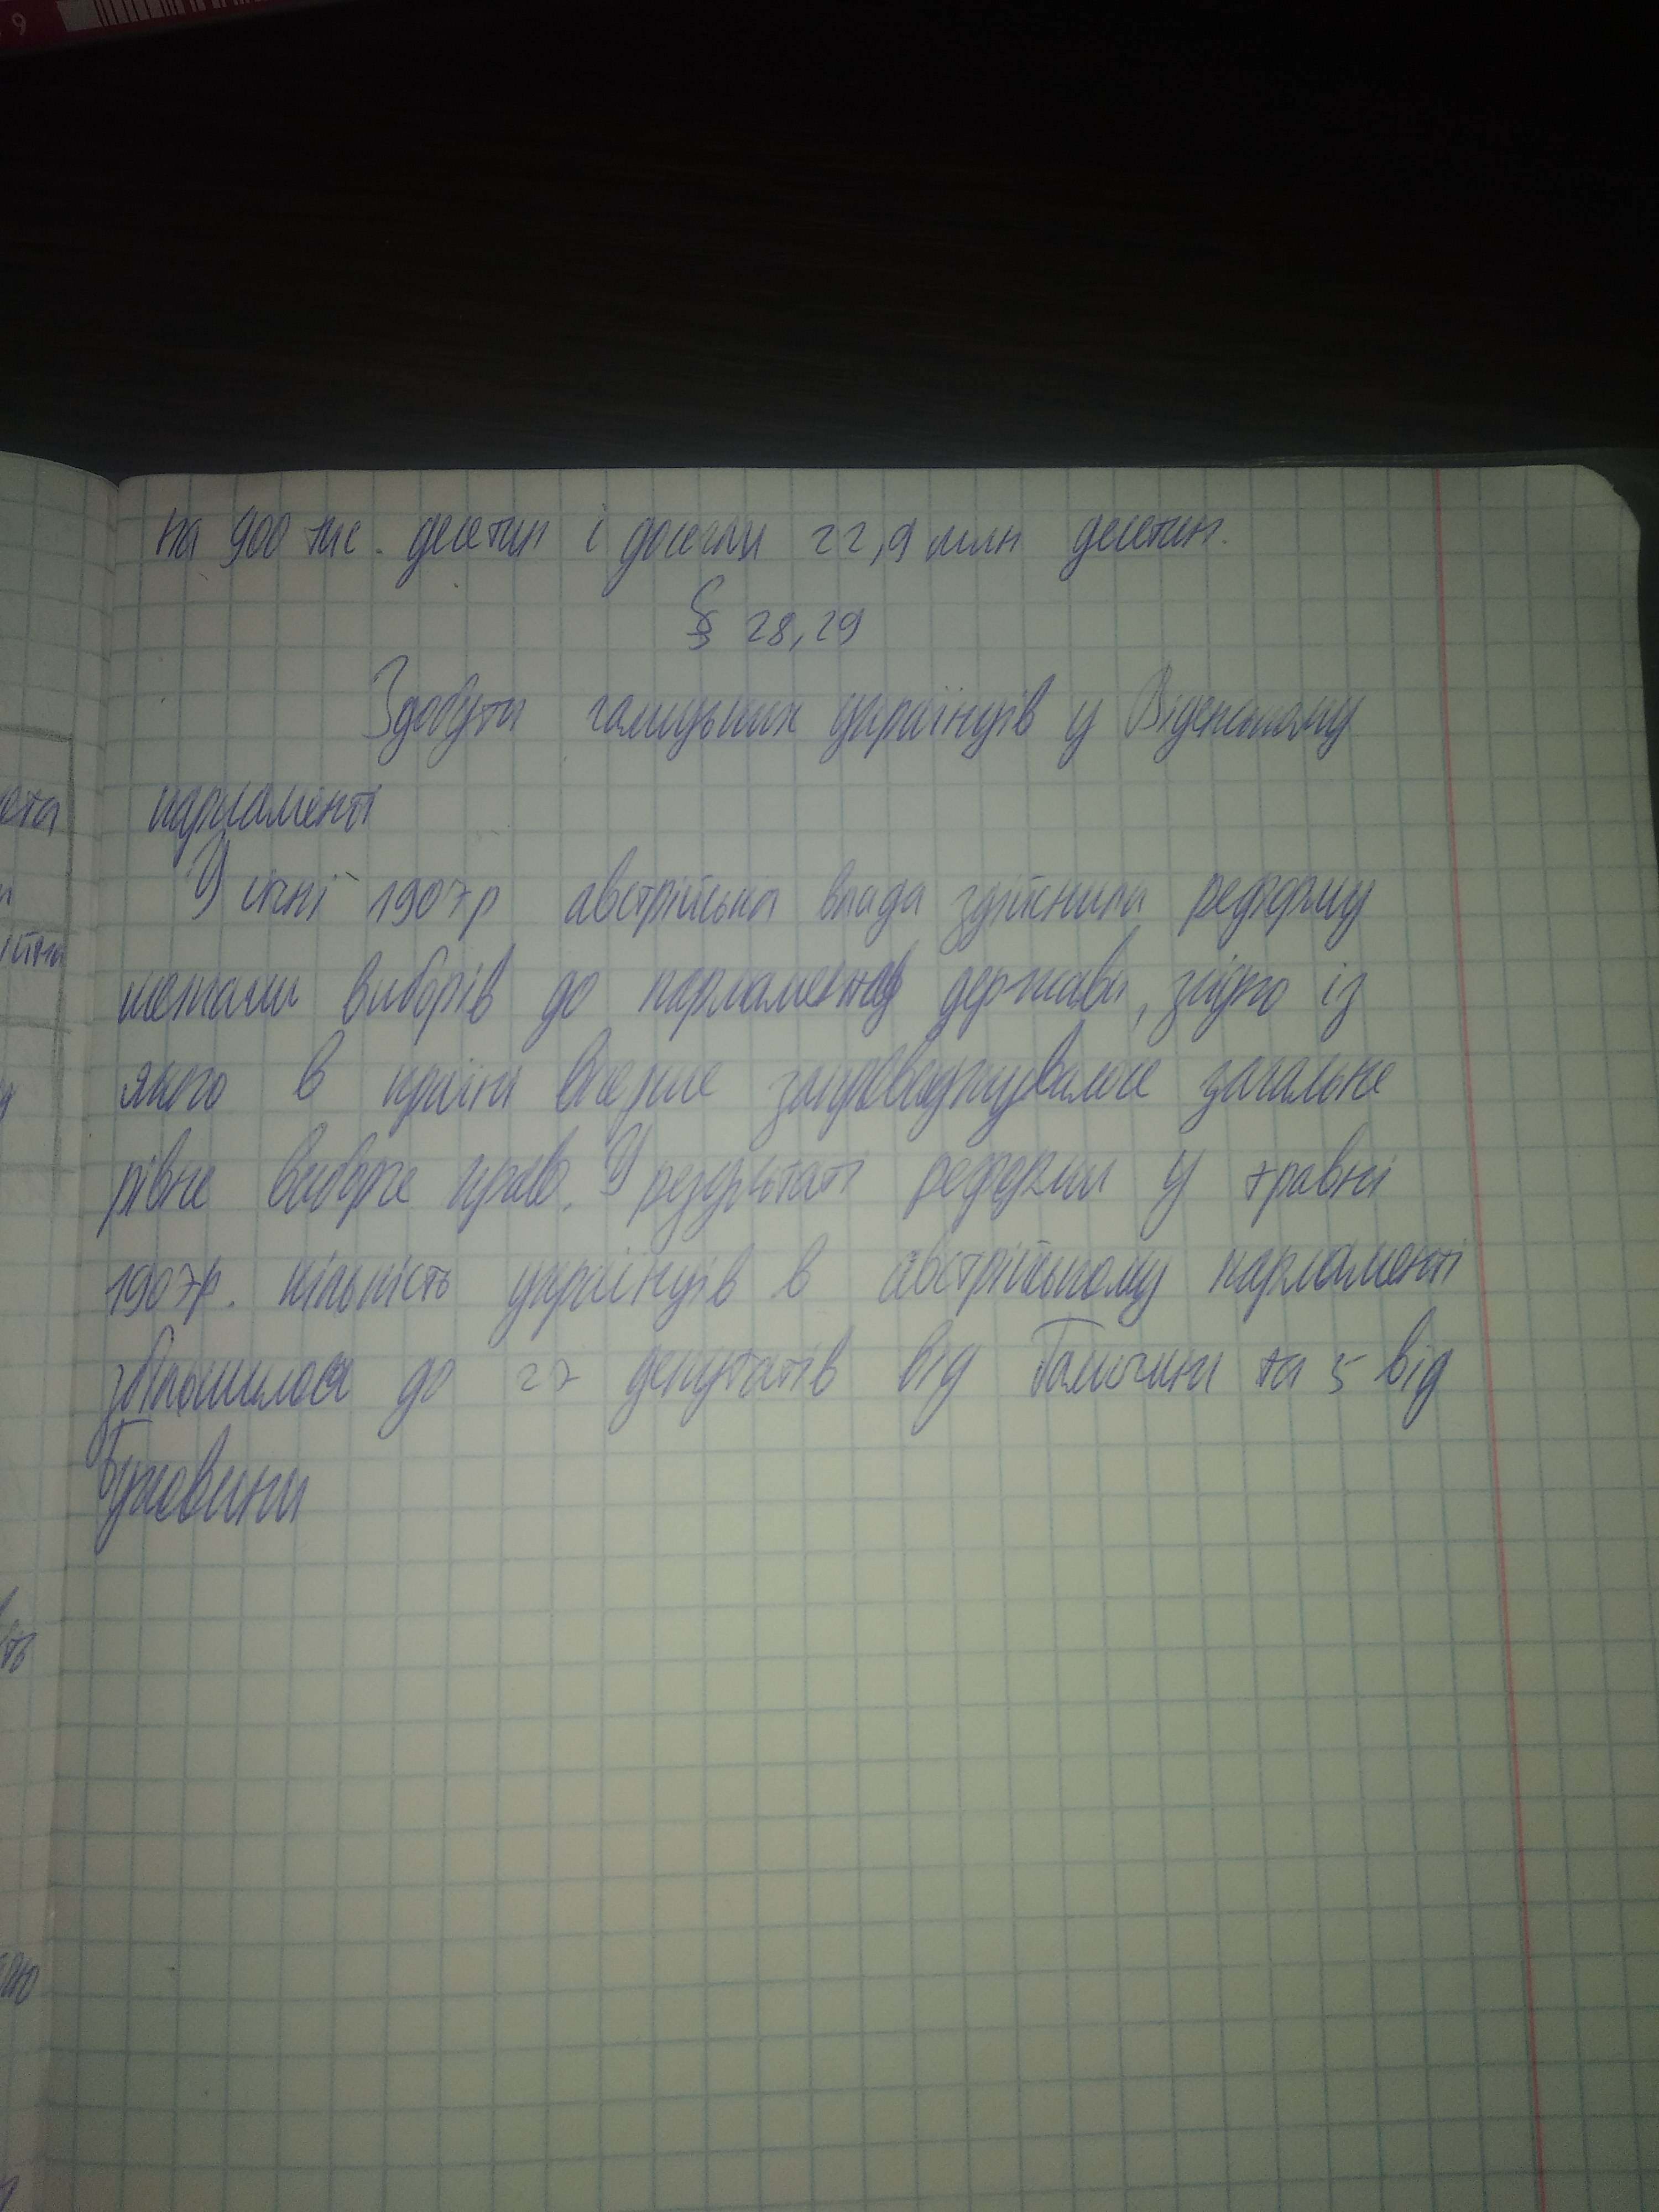 на 900 тис. десетин і досягли 22,9 млн десетин.
§ 28, 29
Здобути галицьких українців у Віденському
парламенті
У січні 1907р австрійська влада здійснила реформу
виборів до парламенту держави, згідно із
якого в країні вперше запроваджувалося загальне
рівне виборче право. У результаті реформи у травні
1907р. кількість українців в австрійському парламенті
збільшилося до 27 депутатів від Галичини та 5 від
Буковини
ета